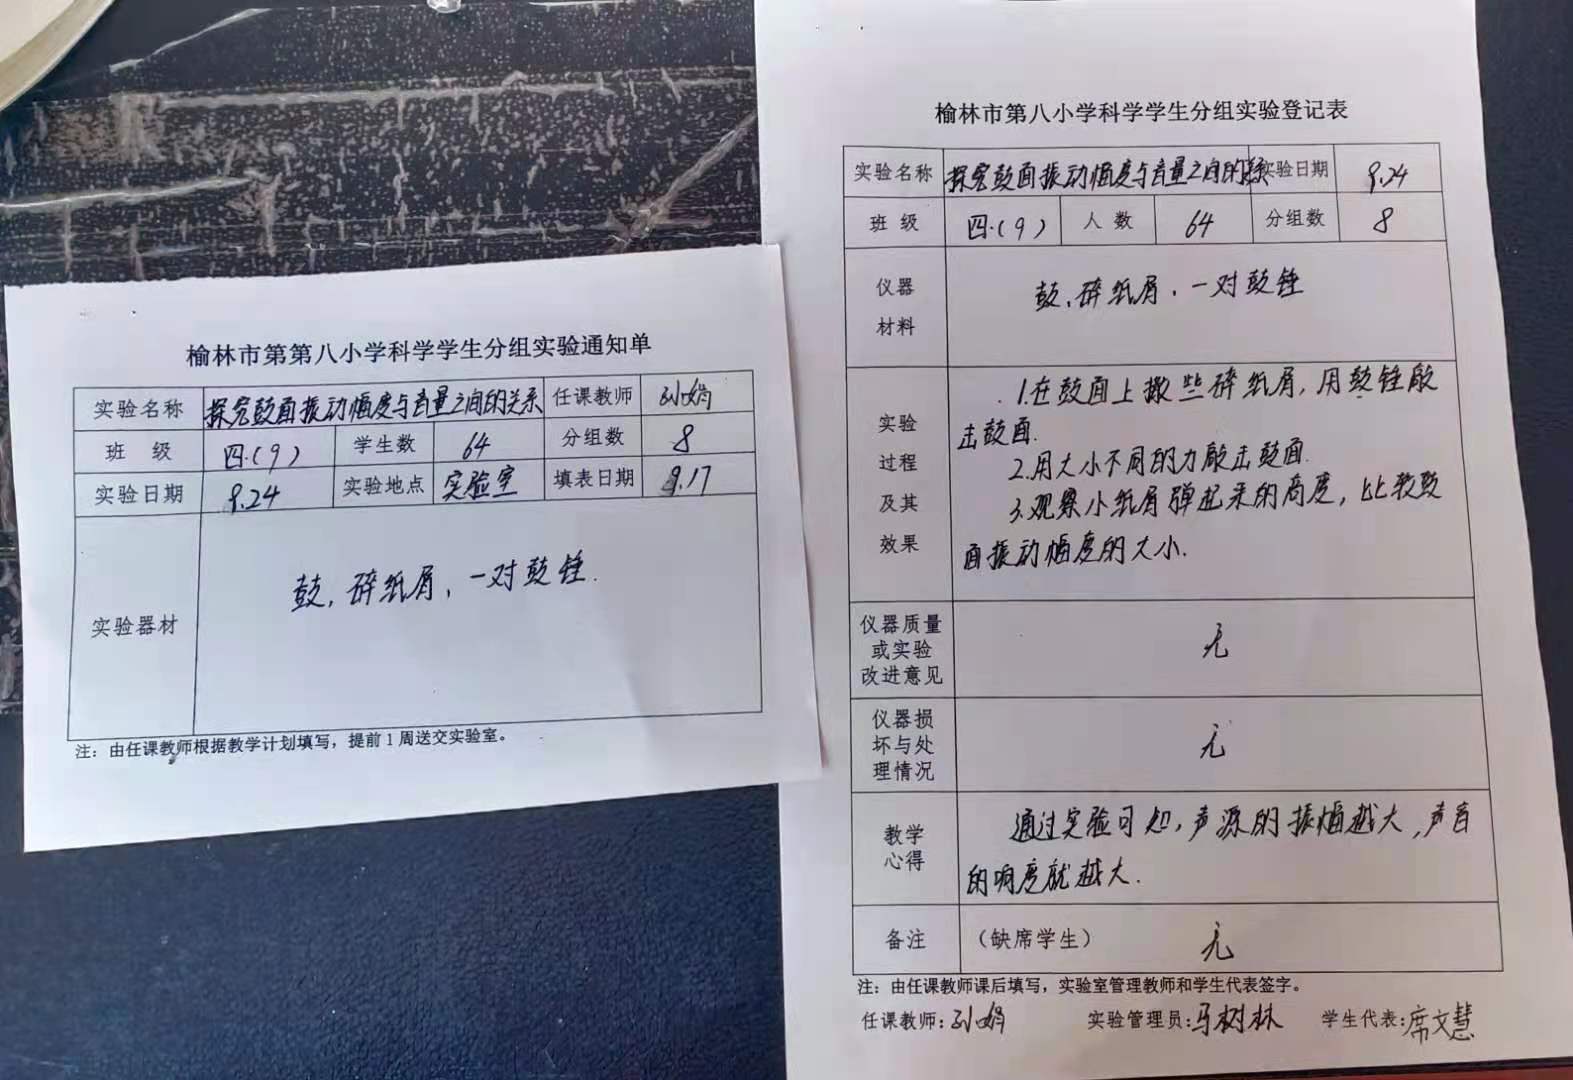 榆林市第第八小学科学学生分组实验通知单
实验名称 探究鼓面振动幅度与音量之间的关系 任课教师 孙娟
班 级 四.(9) 学生数 64 分组数 8
实验日期 9.24 实验地点 实验室 填表日期 9.17
实验器材 鼓,碎纸屑,一对鼓锤.
注：由任课教师根据教学计划填写，提前1周送交实验室。
榆林市第八小学科学学生分组实验登记表
实验名称 探究鼓面振动幅度与音量之间的关系 实验日期 9.24
班 级 四.(9) 人 数 64 分组数 8
仪器
材料
鼓,碎纸屑,一对鼓锤
实验
过程
及其
效果
1.在鼓面上撒些碎纸屑,用鼓锤敲
击鼓面.
2.用大小不同的力敲击鼓面.
3.观察小纸屑弹起来的高度,比较鼓
面振动幅度的大小.
仪器质量
或实验
改进意见
无
仪器损
坏与处
理情况
无
教学
心得
通过实验可知,声源的振幅越大,声音
的响度就越大.
备注 （缺席学生） 无
注：由任课教师课后填写，实验室管理教师和学生代表签字。
任课教师:孙娟 实验管理员:马树林 学生代表:席文慧